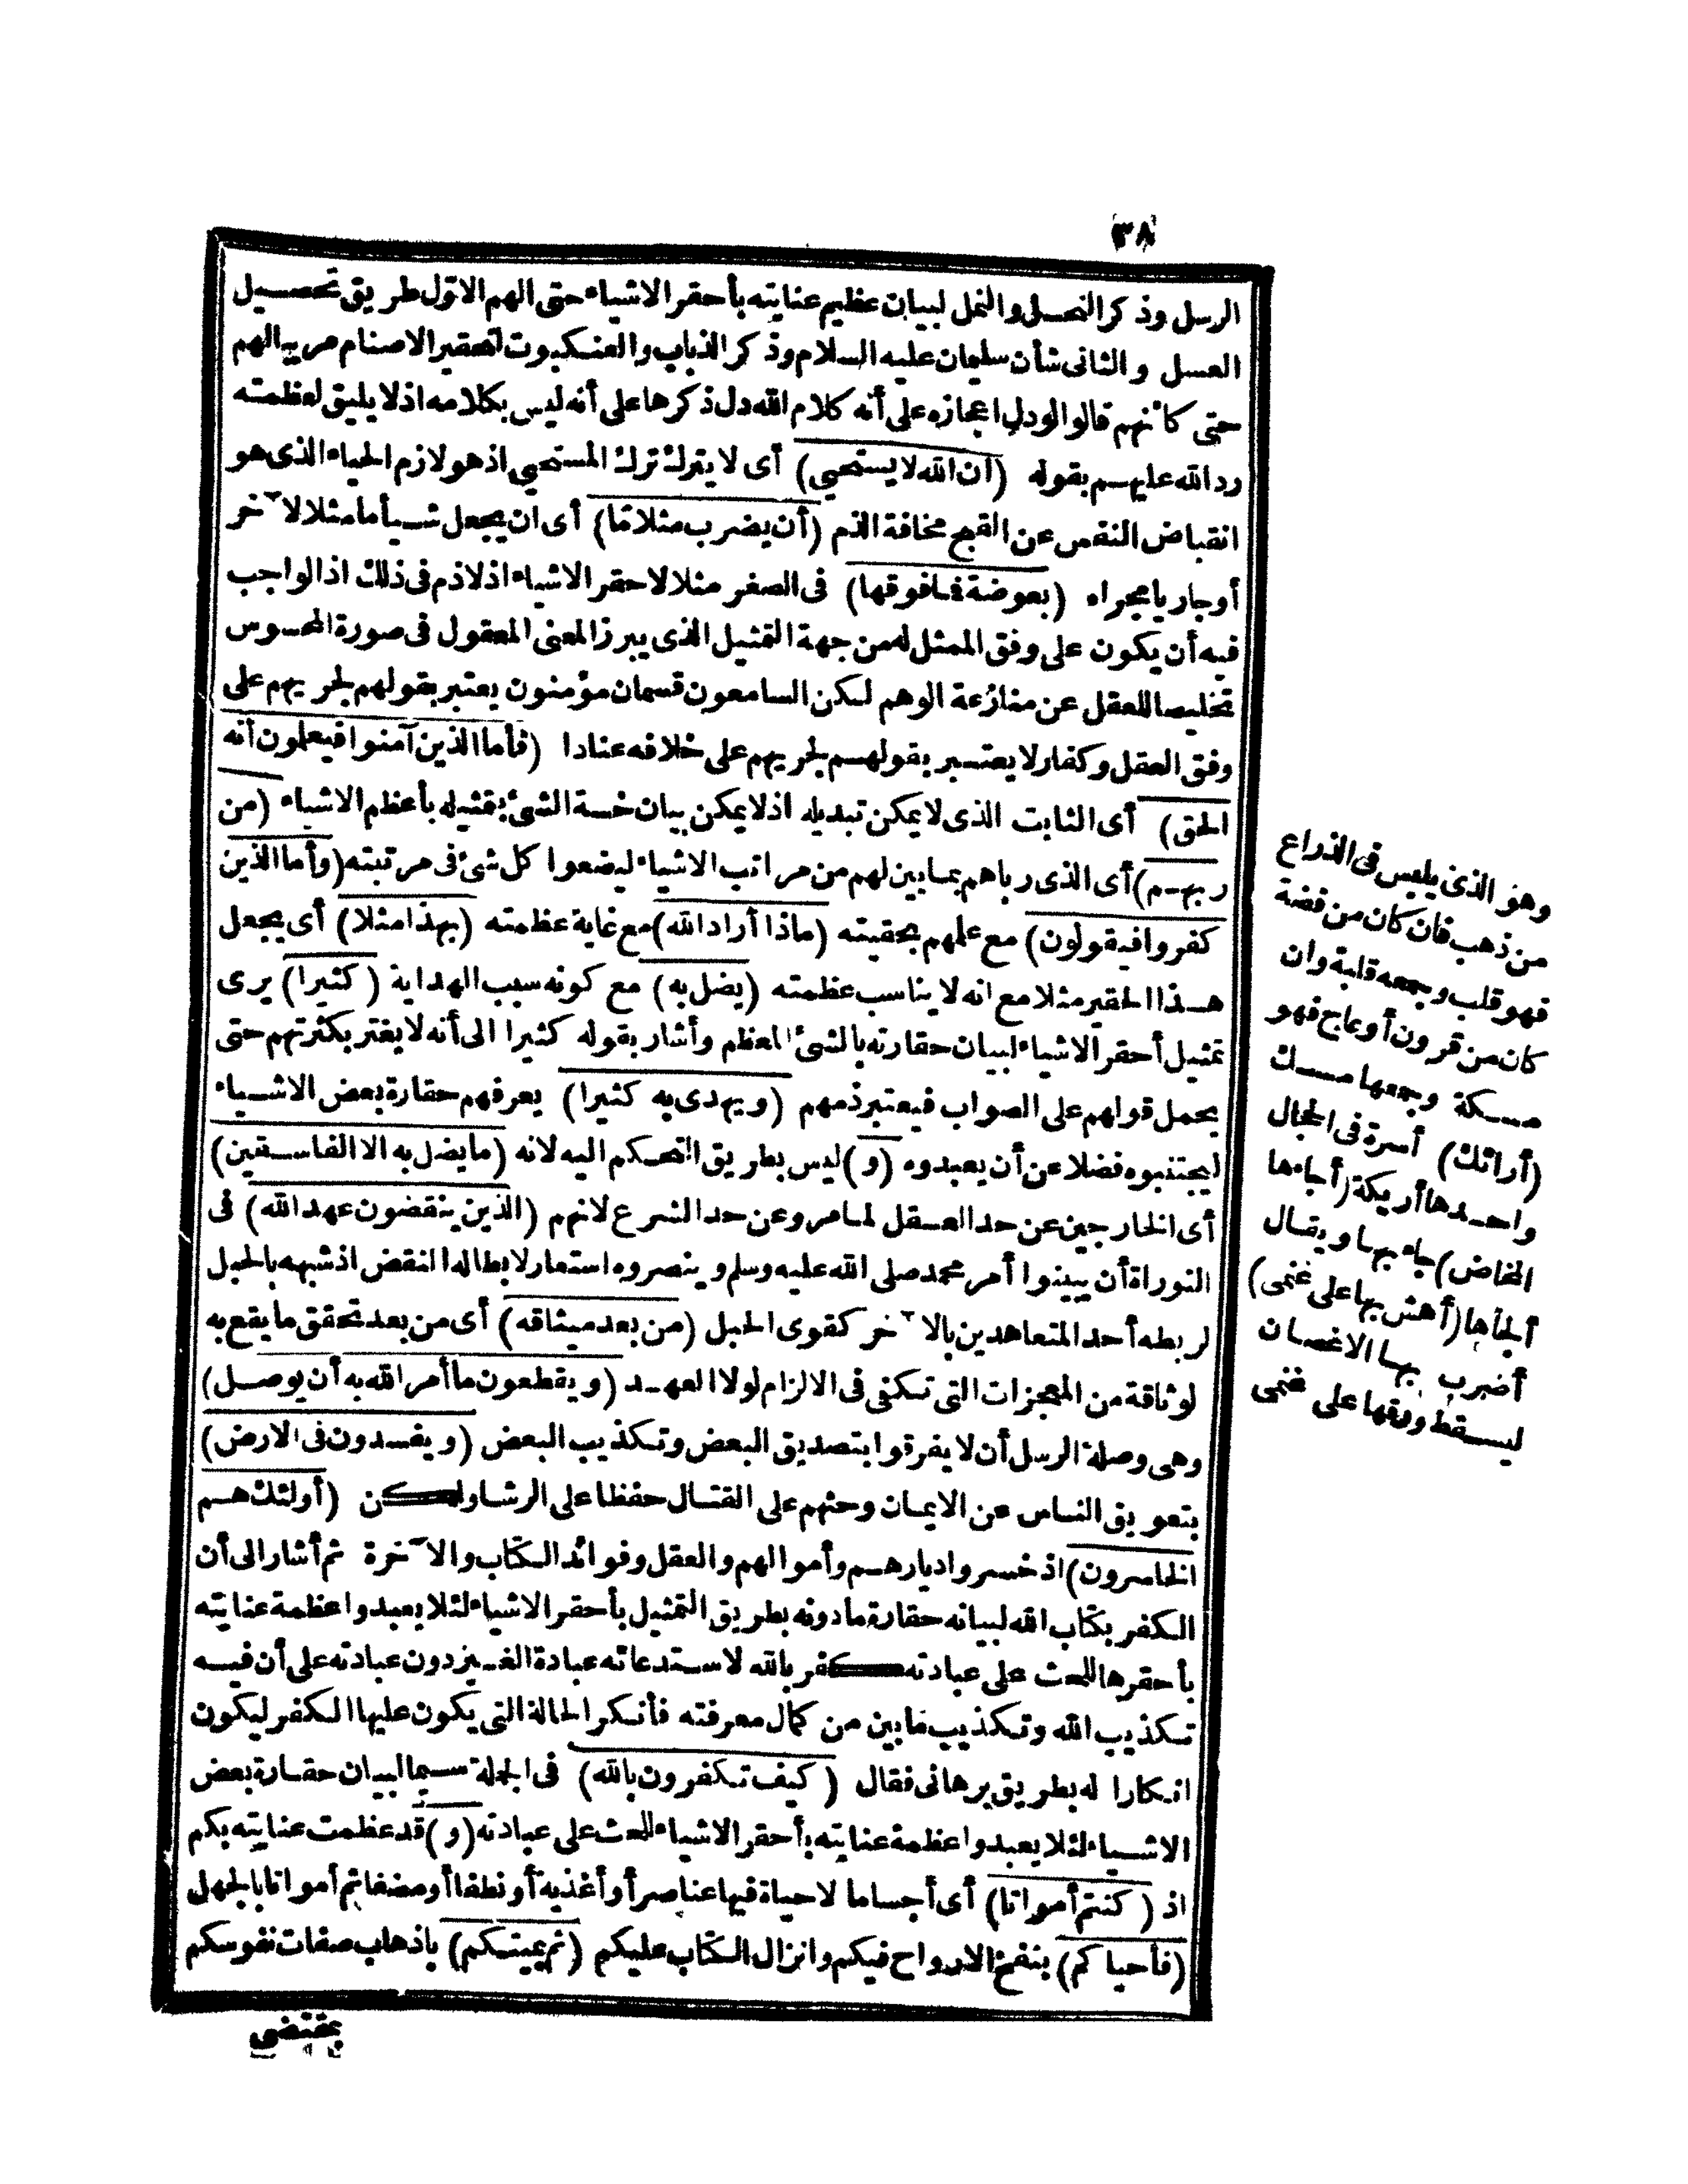 ٣٨
الرسل وذكر النحل والنمل لبيان عظيم عنايته بأحقر الاشياء حتى الهم الاوّل طريق تحصيل
العسل والثانى شأن سليمان عليه السلام وذكر الذباب والعنكبوت لتحقير الاصنام مريبه الهم
حتى كأنهم قالوا لو دل اعجازه على أنه كلام الله دل ذكرها على أنه ليس بكلامه اذ لا يليق لعظمته
رد الله عليهم بقوله (ان الله لا يستحيى) أى لا يترك ترك المستحيى اذ هو لازم الحياء الذى هو
انقباض النفس عن القبح مخافة الذم (أن يضرب مثلا مّا) أى ان يجعل شيأ ما مثلا لآخر
أو جاريا مجراه (بعوضة فما فوقها) فى الصغر مثلا لاحقر الاشياء اذ لا ذم فى ذلك اذ الواجب
فيه أن يكون على وفق الممثل له من جهة التمثيل الذى يبرز المعنى المعقول فى صورة المحسوس
تخليصا للعقل عن منازعة الوهم لكن السامعون قسمان مؤمنون يعتبر بقولهم لجريهم على
وفق العقل وكفار لا يعتبر بقولهم لجريهم على خلافه عنادا (فأما الذين آمنوا فيعلمون أنه
الحق) أى الثابت الذى لا يمكن تبديله اذ لا يمكن بيان خسة الشئ بتمثيله بأعظم الاشياء (من
ربهم) أى الذى رباهم بما بين لهم من مراتب الاشياء ليضعوا كل شئ فى مرتبته (وأما الذين
كفروا فيقولون) مع علمهم بحقيته (ماذا أراد الله) مع غاية عظمته (بهذا مثلا) أى يجعل
هذا الحقير مثلا مع انه لا يناسب عظمته (يضل به) مع كونه سبب الهداية (كثيرا) يرى
تمثيل أحقر الاشياء لبيان حقارته بالشئ المعظم وأشار بقوله كثيرا الى أنه لا يغتر بكثرتهم حتى
يحمل قولهم على الصواب فيعتبر ذمهم (ويهدى به كثيرا) يعرفهم حقارة بعض الاشياء
ليجتنبوه فضلا عن أن يعبدوه (و) ليس بطريق التحكم اليه لانه (ما يضل به الا الفاسقين)
أى الخارجين عن حد العقل لما مر وعن حد الشرع لانهم (الذين ينقضون عهد الله) فى
التوراة أن يبينوا أمر محمد صلى الله عليه وسلم وينصروه استعار لابطاله النقض اذ شبهه بالحبل
لربطه أحد المتعاهدين بالآخر كقوى الحبل (من بعد ميثاقه) أى من بعد تحقق ما يقع به
لوثاقة من المعجزات التى تكفى فى الالزام لولا العهد (ويقطعون ما أمر الله به أن يوصل)
وهى وصلة الرسل أن لا يفرقوا بتصديق البعض وتكذيب البعض (ويفسدون فى الارض)
بتعويق الناس عن الايمان وحثهم على القتال حفظا على الرشا ولكن (أولئك هم
الخاسرون) اذ خسروا ديارهم وأموالهم والعقل وفوائد الكتاب والآخرة ثم أشار الى أن
الكفر بكتاب الله لبيانه حقارة ما دونه بطريق التمثيل بأحقر الاشياء لئلا يعبدوا عظمة عنايته
بأحقرها للحث على عبادته كفر بالله لاستدعائه عبادة الغير دون عبادته على أن فيه
تكذيب الله وتكذيب ما بين من كمال معرفته فأنكر الحالة التى يكون عليها الكفر ليكون
انكارا له بطريق برهانى فقال (كيف تكفرون بالله) فى الجملة سيما لبيان حقارة بعض
الاشياء لئلا يعبدوا عظمة عنايته بأحقر الاشياء للحث على عبادته (و) قد عظمت عنايته بكم
اذ (كنتم أمواتا) أى أجساما لا حياة فيها عناصر أو أغذية أو نطفا أو مضغا ثم أمواتا بالجهل
(فأحياكم) بنفخ الارواح فيكم وانزال الكتاب عليكم (ثم يميتكم) باذهاب صفات نفوسكم
بمقتضى
وهو الذى يلبس فى الذراع
من ذهب فان كان من فضة
فهو قلب وجمعه قلبة وان
كان من قرون أو عاج فهو
مسكة وجمعها مسك
(أرائك) أسرة فى الحجال
واحدها أريكة (أجاءها
المخاض) جاء بها ويقال
ألجأها (أهش بها على غنمى)
أضرب بها الاغصان
ليسقط ورقها على غنمى